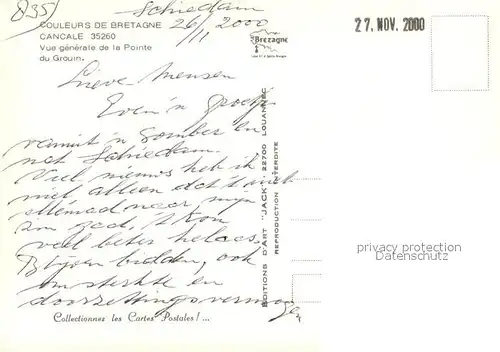 835
Schiedam
26/11 2000
COULEURS DE BRETAGNE
CANCALE 35260
Vue générale de la Pointe
du Grouin.
Bretagne
27. NOV. 2000
Lieve Mensen
Even 'n groetje
vanuit 'n somber en
nat Schiedam.
Veel nieuws heb ik
niet alleen dat 't niet
allemaal naar mijn
zin gaat, 't kon
veel beter helaas.
Blijven bidden, ook
om sterkte en
doorzettingsvermogen
EDITIONS D'ART "JACK" 22700 LOUANNEC
REPRODUCTION INTERDITE
privacy protection
Datenschutz
Collectionnez les Cartes Postales !...